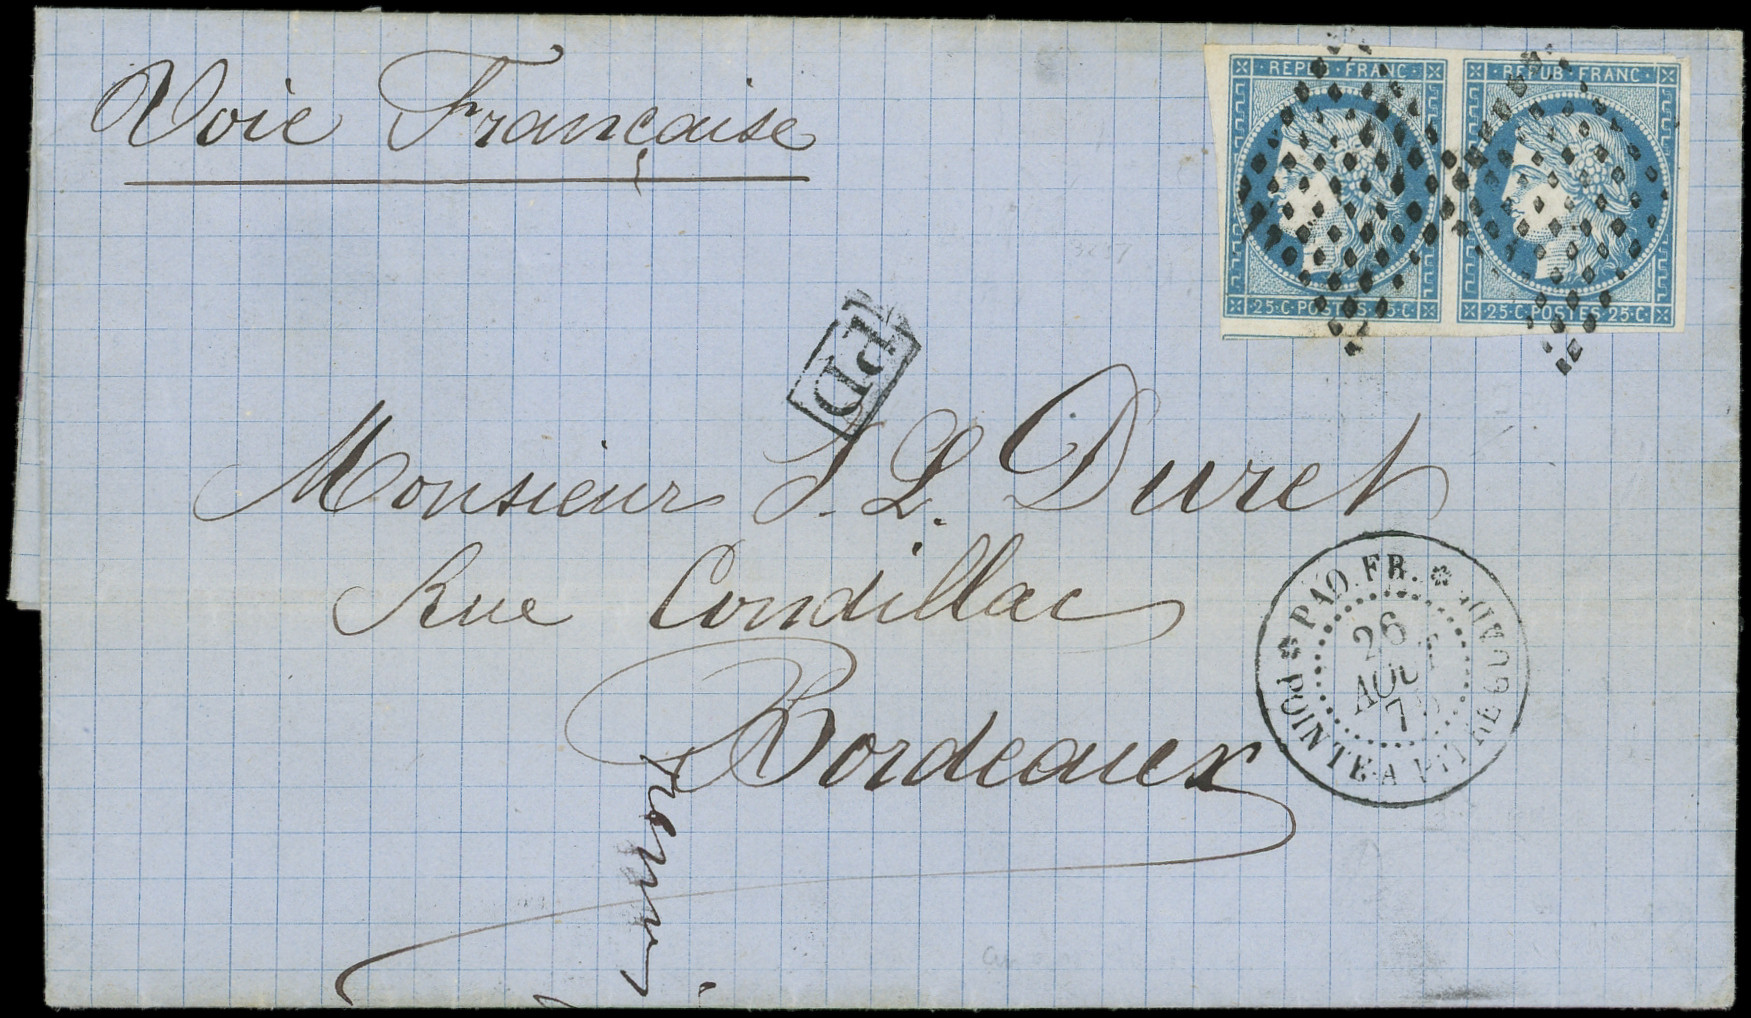 Voie Française
REPUB · FRANC ·
· REPUB · FRANC ·
25·C·POSTES 25·C·
·25·C·POSTES 25·C·
PD
Monsieur J. L. Duret
Rue Condillac
Bordeaux
PAQ. FR.
POINTE-A-PITRE GUADE
26
AOUT
7